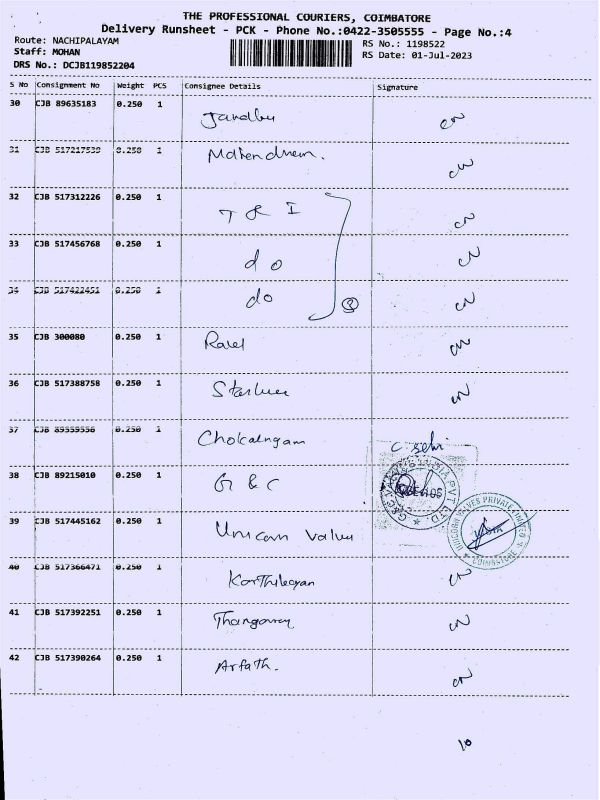 THE PROFESSIONAL COURIERS, COIMBATORE
Delivery Runsheet - PCK - Phone No.:0422-3505555 - Page No.:4
Route: NACHIPALAYAM
Staff: MOHAN
DRS No.: DCJB119852204
RS No.: 1198522
RS Date: 01-Jul-2023
S No Consignment No Weight PCS Consignee Details Signature
30 CJB 89635183 0.250 1 CN
31 CJB 517217539 0.250 1 CN
32 CJB 517312226 0.250 1 T & I CN
33 CJB 517456768 0.250 1 do CN
34 CJB 517422451 0.250 1 do 3 CN
35 CJB 300080 0.250 1 CN
36 CJB 517388758 0.250 1 CN
37 CJB 0.250 1 Chokalngam C. Selvi
38 CJB 89215010 0.250 1 G & C
39 CJB 517445162 0.250 1 Unicorn Valves
UNICORN VALVES PRIVATE LIMITED
COIMBATORE
40 CJB 517366471 0.250 1 CN
41 CJB 517392251 0.250 1 CN
42 CJB 517390264 0.250 1 Arfath. CN
10